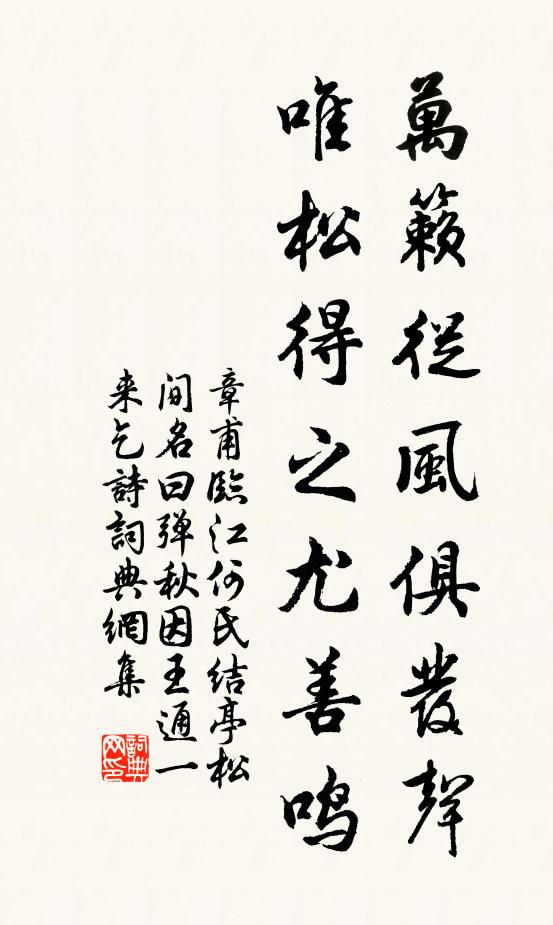 萬籟從風俱發聲
唯松得之尤善鳴
章甫臨江何氏結亭松
間名曰弹秋因王通一
来乞詩詞典網集
詞典网印